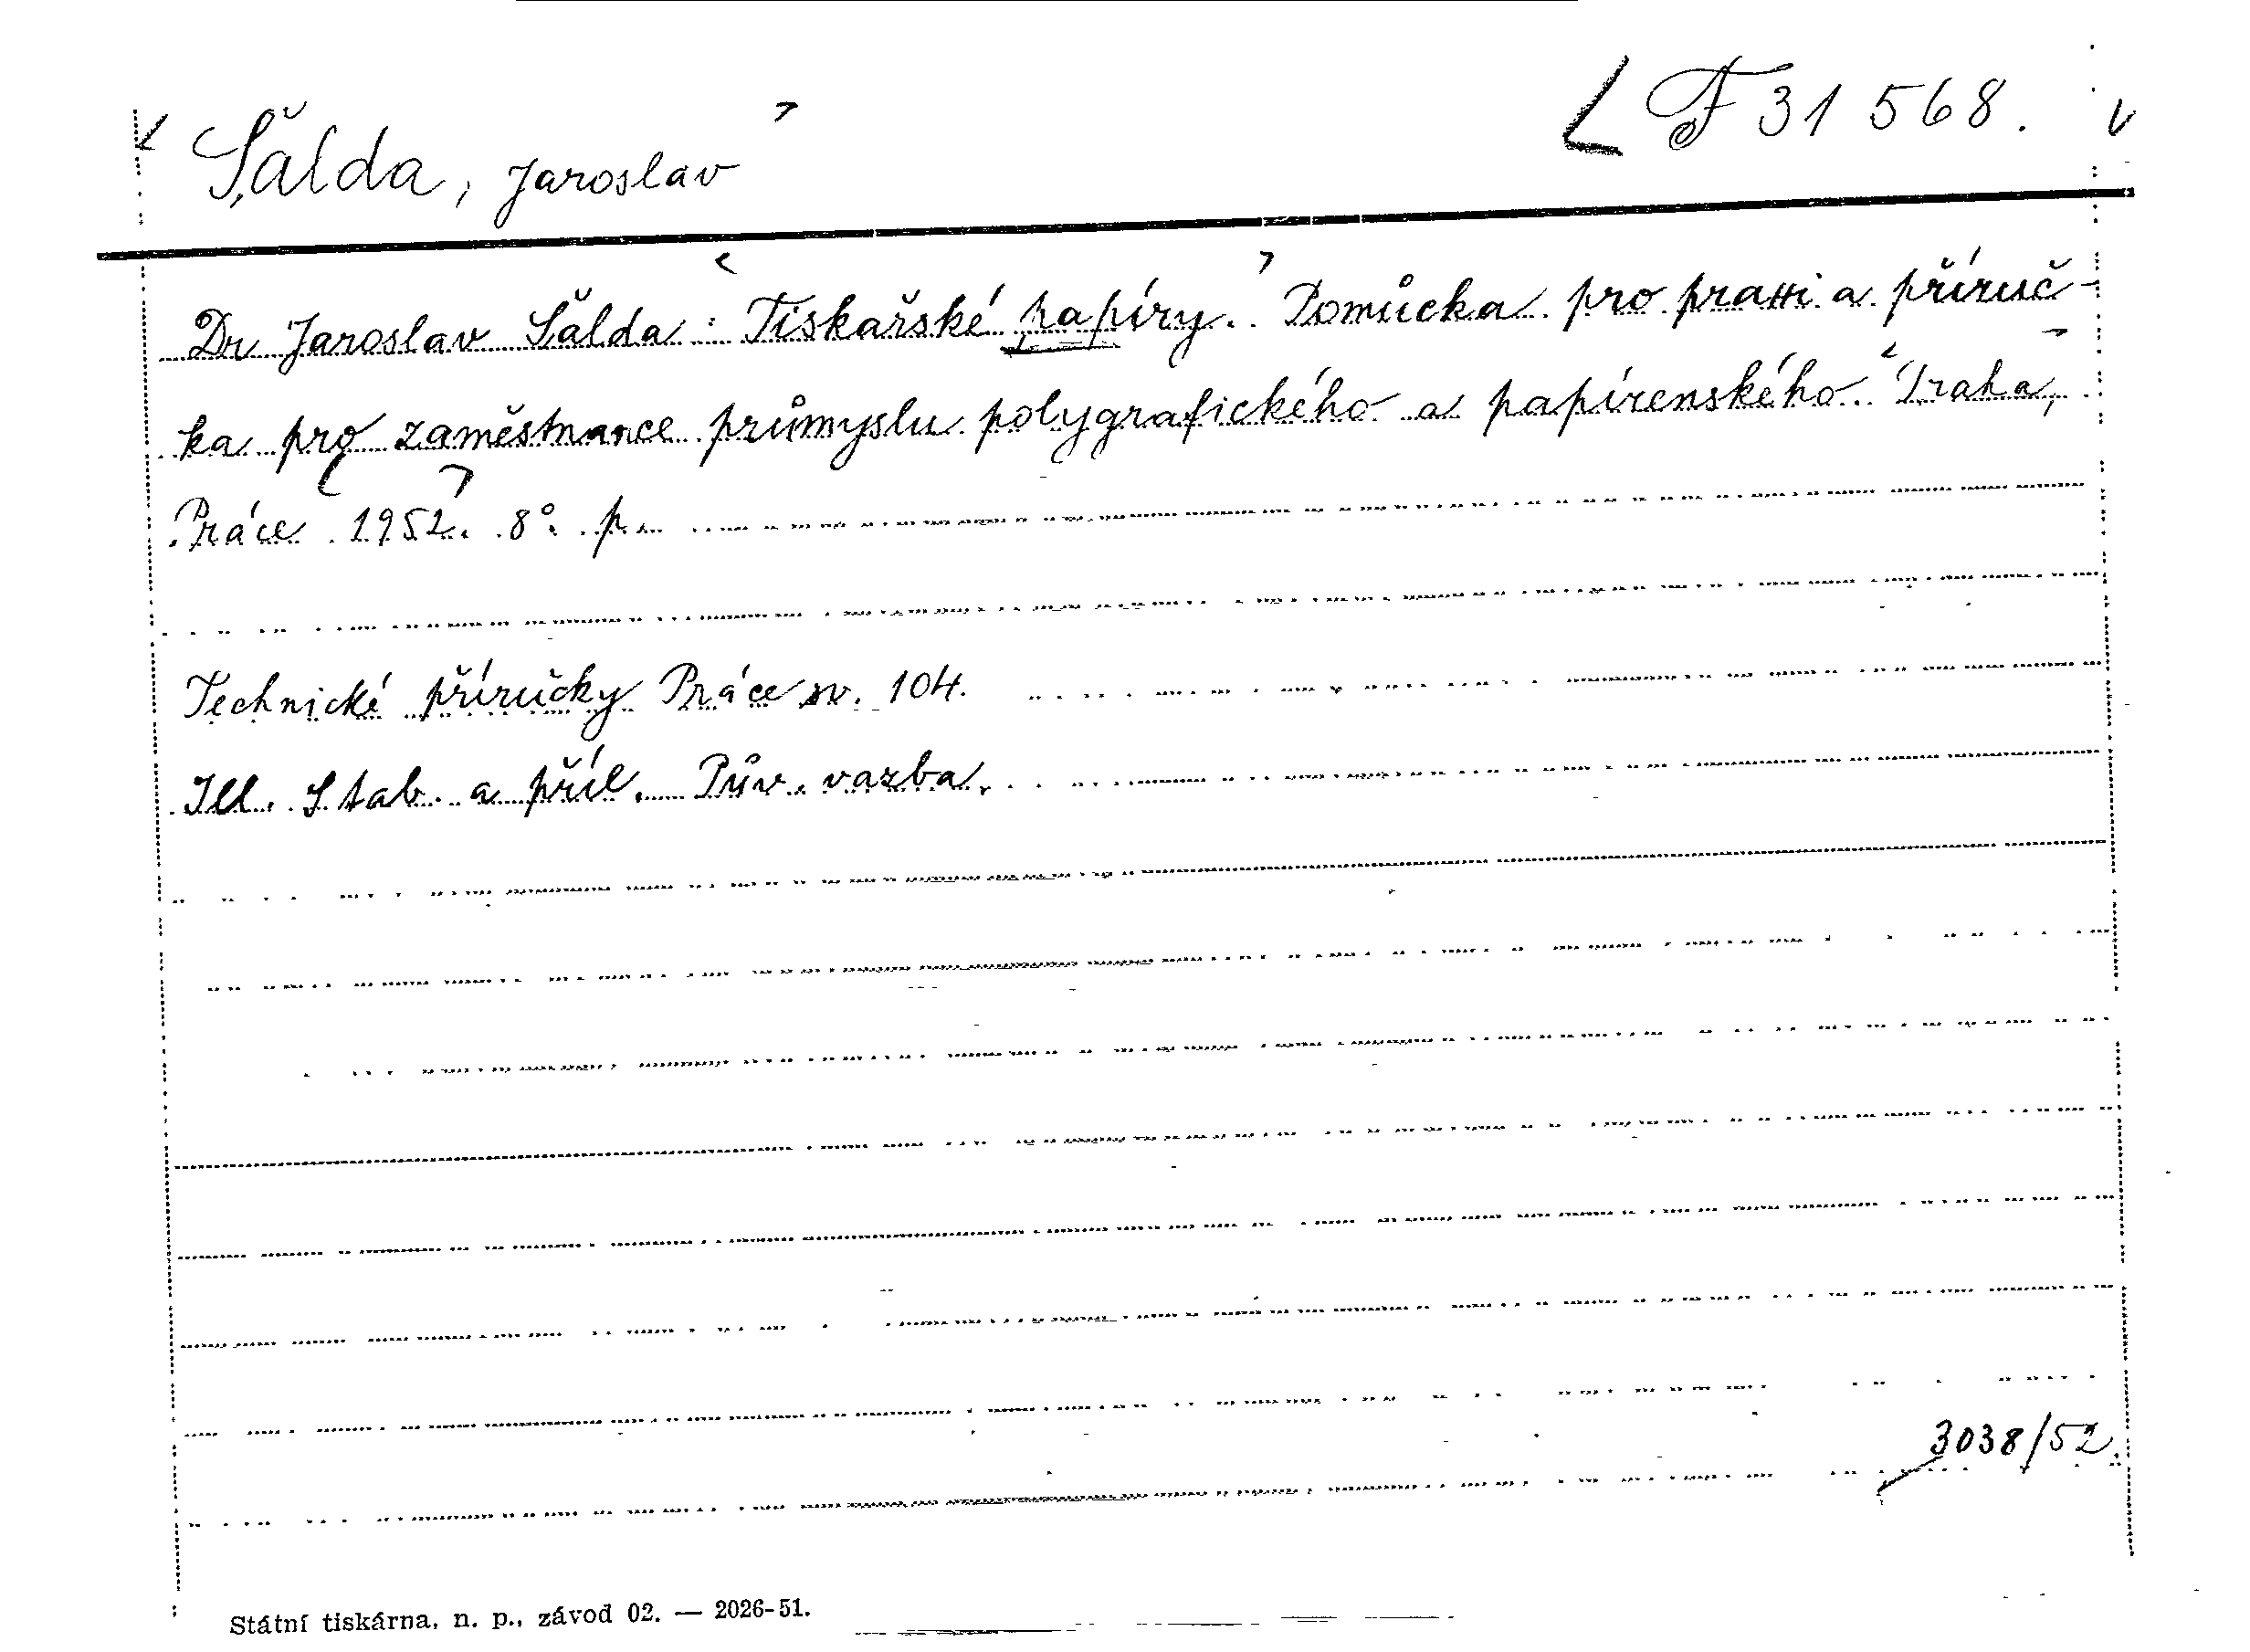 Šálda, Jaroslav
F 31 568.
Dr Jaroslav Šálda: Tiskařské papíry. Pomůcka pro praxi a příruč-
ka pro zaměstnance průmyslu polygrafického a papírenského. Praha,
Práce 1952. 8°. p.
Technické příručky Práce sv. 104.
Ill. S tab. a příl. Pův. vazba.
3038/52.
Státní tiskárna, n. p., závod 02. — 2026-51.